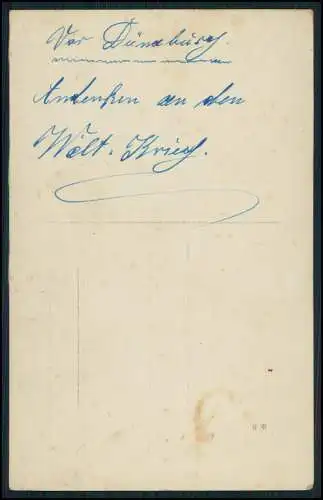 Vor Dünaburg.
Andenken an den
Welt-Krieg.